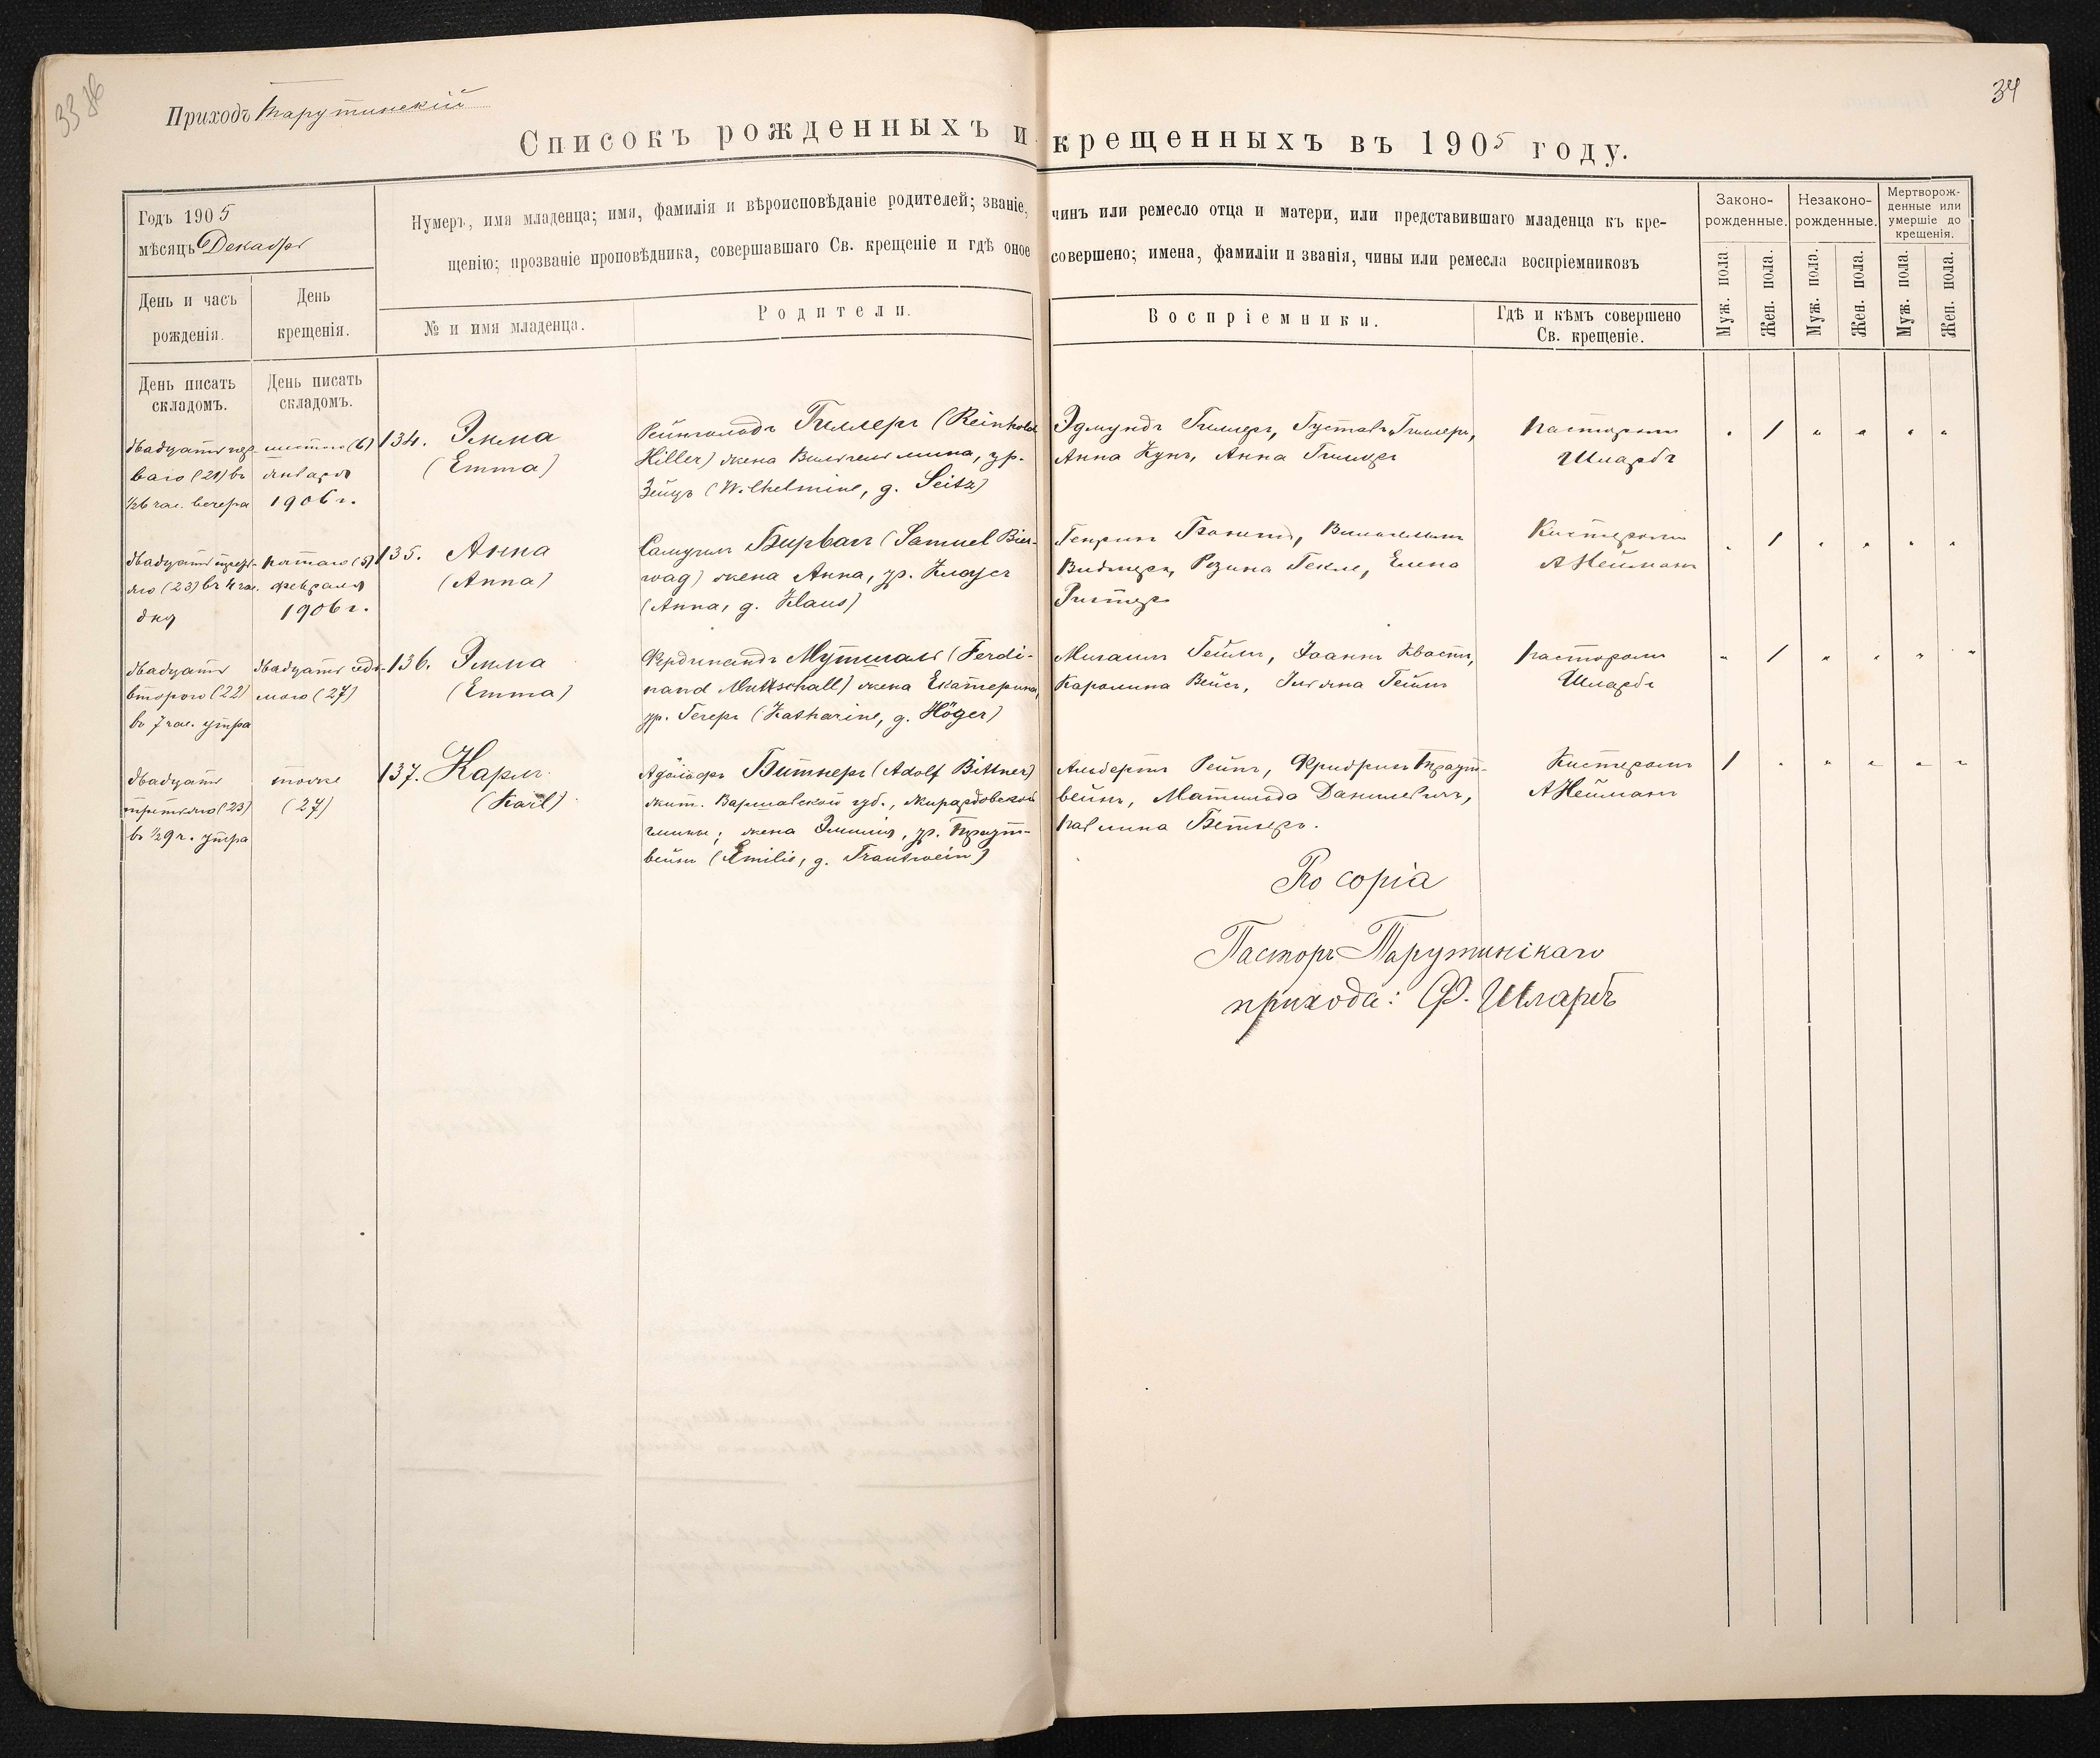 34
Приходъ Тарутинскій
Списокъ рожденныхъ и крещенныхъ въ 1905 году.
Годъ 1905
мѣсяцъ Декабрь
Нумеръ, имя младенца; имя, фамилія и вѣроисповѣданіе родителей; званіе, чинъ или ремесло отца и матери, или представившаго младенца къ кре-
щенію; прозваніе проповѣдника, совершавшаго Св. крещеніе и гдѣ оное совершено; имена, фамиліи и званія, чины или ремесла воспріемниковъ
Законо-
рожденные.
Незаконо-
рожденные.
Мертворож-
денные или
умершіе до
крещенія.
Муж. пола.
Жен. пола.
Муж. пола.
Жен. пола.
Муж. пола.
Жен. пола.
День и часъ
рожденія.
День
крещенія.
№ и имя младенца.
Родители.
Воспріемники.
Гдѣ и кѣмъ совершено
Св. крещеніе.
День писать
складомъ.
День писать
складомъ.
двадцать пер-
ваго (21) въ
½6 час. вечера
шестого (6)
января
1906 г.
134. Эмма
(Emma)
Рейнгольдъ Гиллеръ (Reinhold
Hiller) жена Вильгельмина, ур.
Зейцъ (Wilhelmine, g. Seitz)
Эдмундъ Гиллеръ, Густавъ Гиллеръ,
Анна Кунъ, Анна Гиллеръ
Пасторомъ
Шларбъ
1
двадцать треть-
яго (23) въ 4 час.
дня
пятаго (5)
февраля
1906 г.
135. Анна
(Anna)
Самуилъ Бирвагъ (Samuel Bier-
wag) жена Анна, ур. Клаусъ
(Anna, g. Klaus)
Видмеръ, Розина Гекле, Елена
Рихтеръ
Кистеромъ
А Нейманъ
1
двадцать
второго (22)
въ 7 час. утра
двадцать седь-
мого (27)
136. Эмма
(Emma)
Фердинандъ Мутшаль (Ferdi-
nand Muttschall) жена Екатерина,
ур. Гегеръ (Katharine, g. Höger)
Михаилъ Гейнъ, Іоаннъ Квастъ,
Каролина Вейсъ, Юліяна Гейнъ
Пасторомъ
Шларбъ
1
двадцать
третьяго (23)
въ ½9 ч. утра
тоже
(27)
137. Карлъ
(Karl)
Адольфъ Битнеръ (Adolf Bittner)
жит. Варшавской губ., Жирардовской
гмины; жена Эмилія, ур. Траут-
вейнъ (Emilie, g. Trautwein)
Альбертъ Рейнъ, Фридрихъ Траут-
вейнъ, Матильда Данилевичъ,
Павлина Бетхеръ.
Кистеромъ
А Нейманъ
1
Pro copia
Пасторъ Тарутинскаго
прихода: Ф. Шларбъ